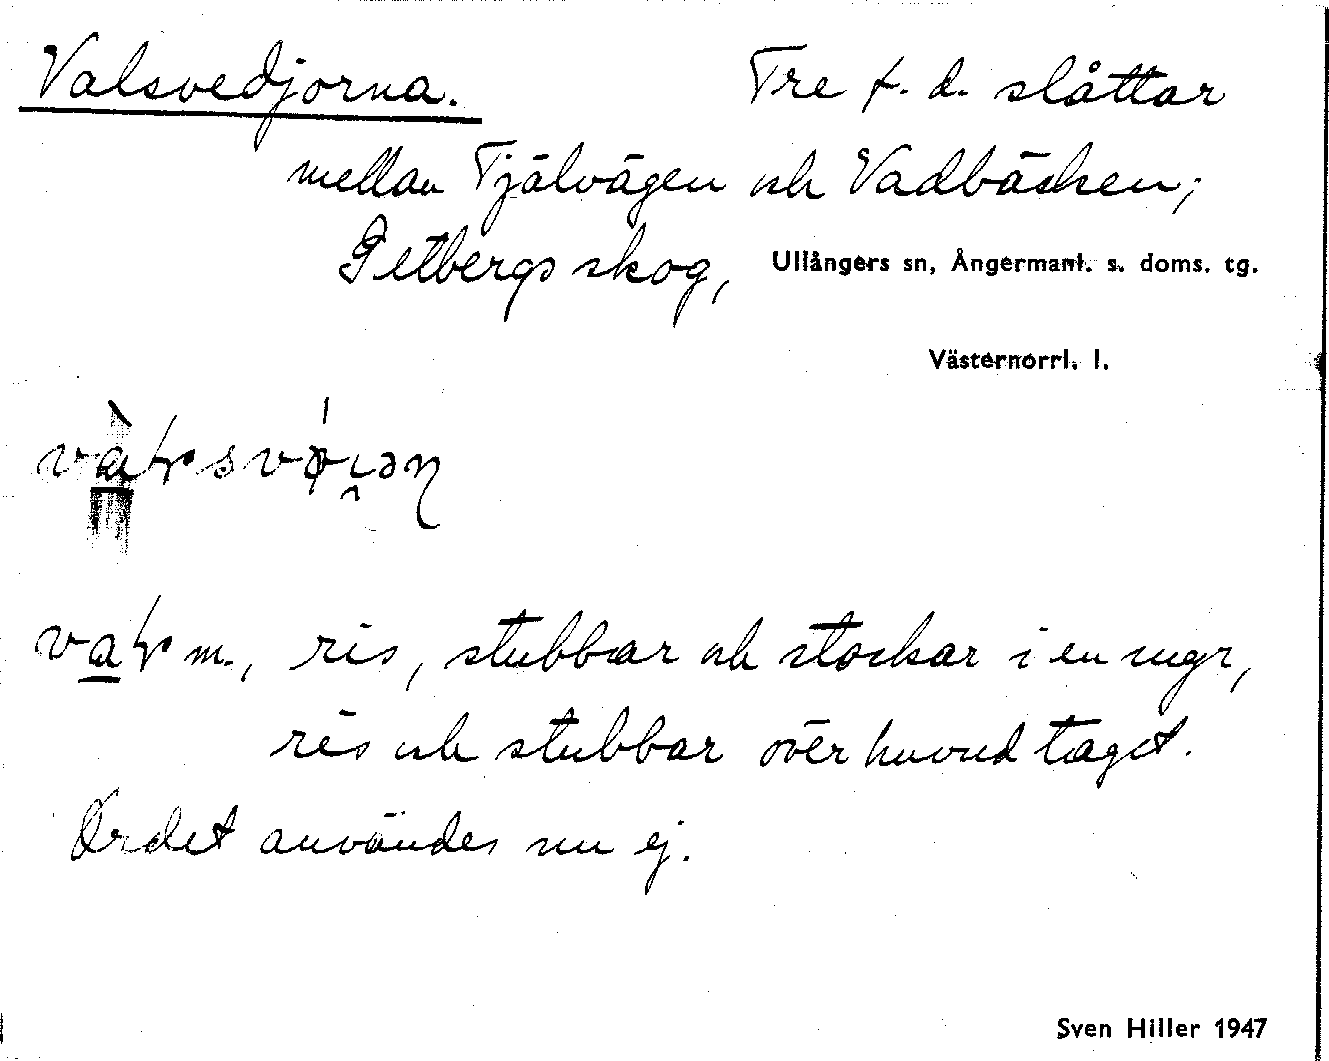 Valsvedjorna. Tre f. d. slåttar
mellan Tjälvägen och Vadbäcken;
Getbergs skog, Ullångers sn, Ångermanl. s. doms. tg.
Västernorrl. l.
m., ris, stubbar och stockar i en myr,
ris och stubbar över huvud taget.
Ordet användes nu ej.
Sven Hiller 1947